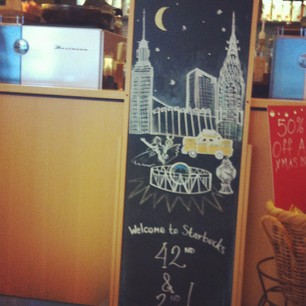 Welcome to Starbucks
42ND
&
2ND
50%
Off A
XMAS